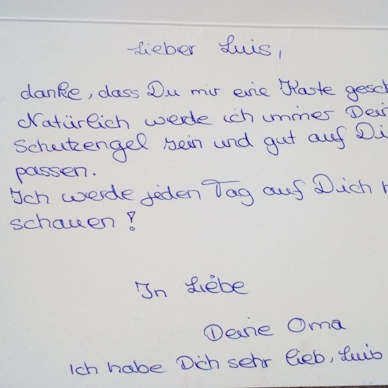 Lieber Luis,
danke, dass Du mir eine Karte
Natürlich werde ich immer
Schutzengel sein und gut auf
passen.
Ich werde jeden Tag auf Dich
schauen!
In Liebe
Deine Oma
Ich habe Dich sehr lieb, Luis